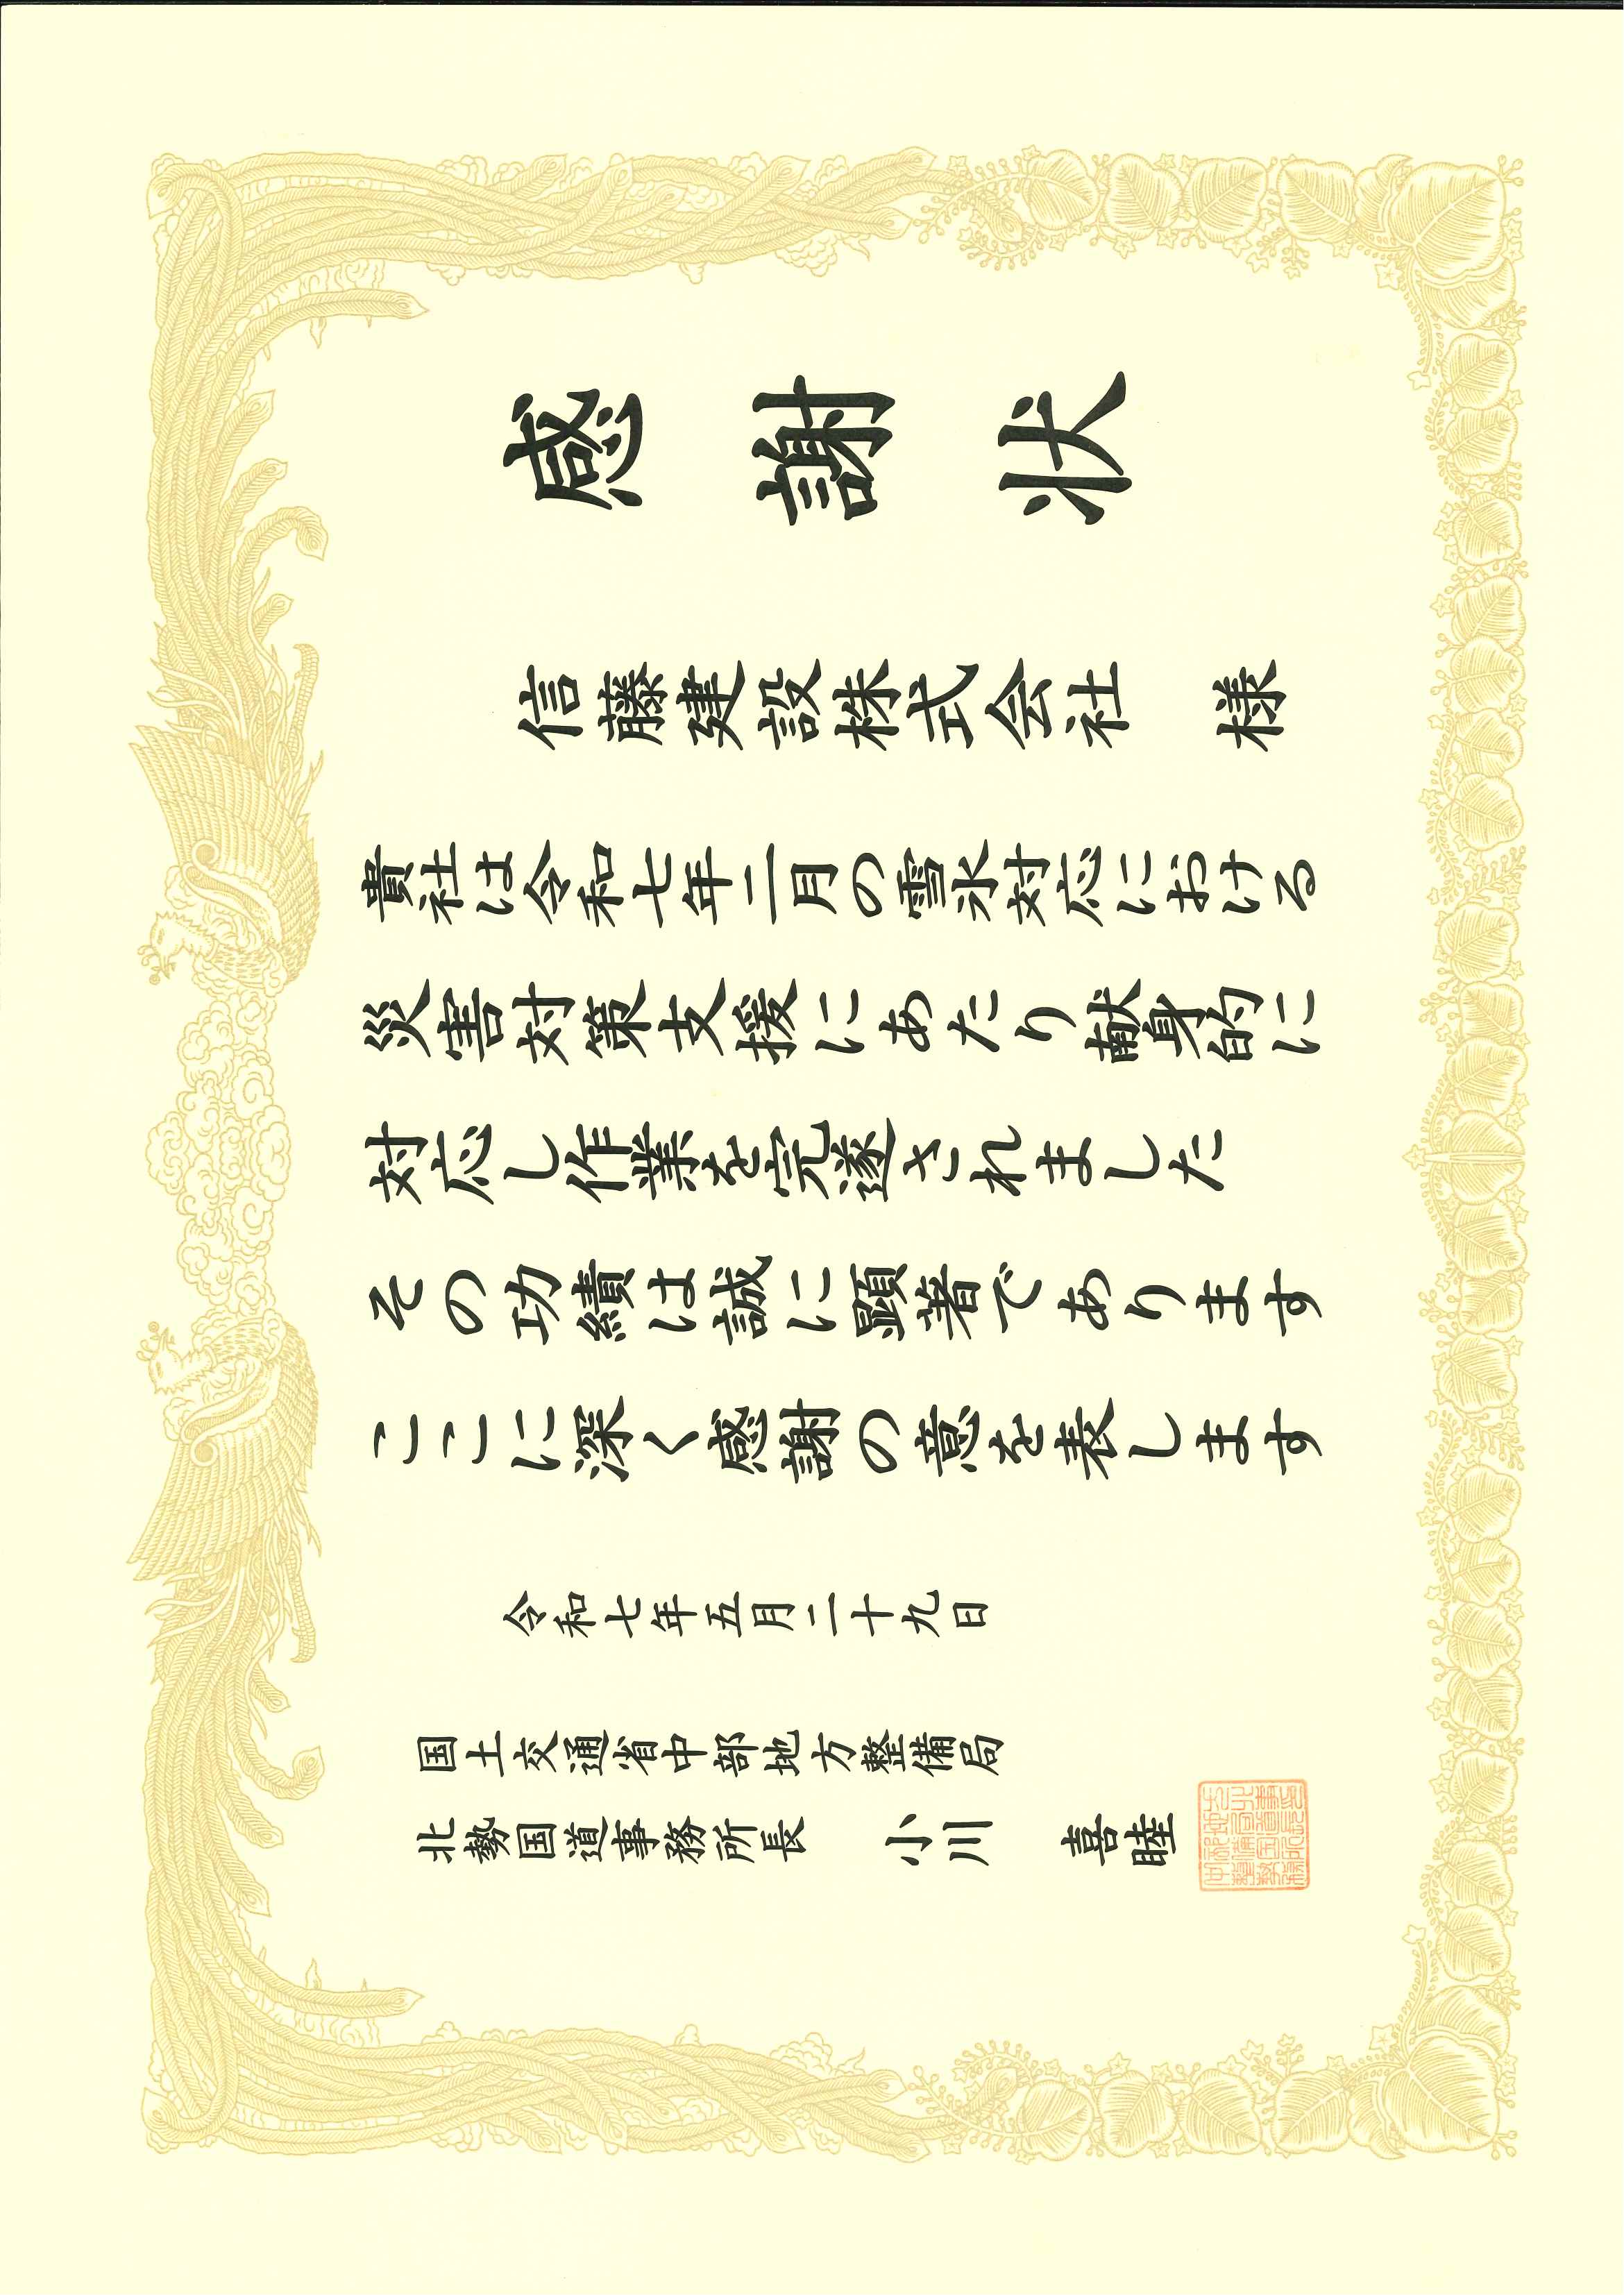 感謝状
信藤建設株式会社 様
貴社は令和七年二月の雪氷対応における
災害対策支援にあたり献身的に
対応し作業を完遂されました
その功績は誠に顕著であります
ここに深く感謝の意を表します
令和七年五月二十九日
国土交通省中部地方整備局
北勢国道事務所長 小川 喜睦